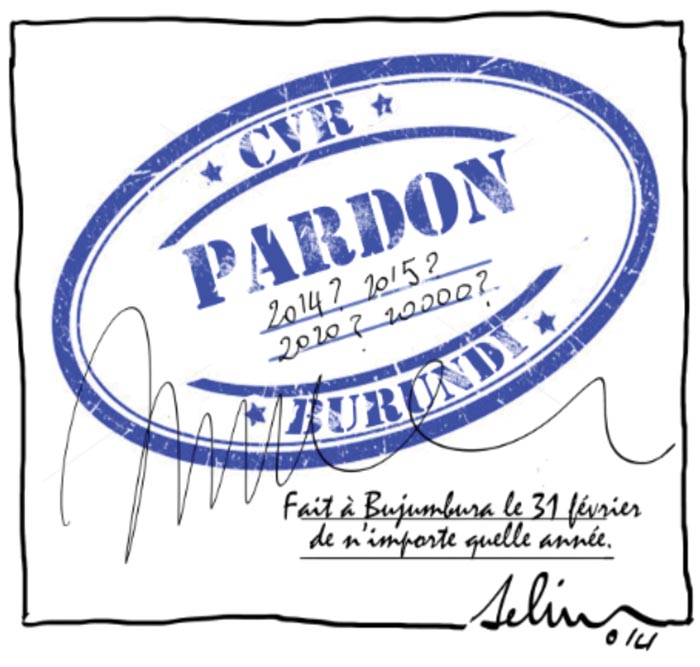 CVR
PARDON
2014? 2015?
2020? 20000?
BURUNDI
Fait à Bujumbura le 31 février
de n'importe quelle année.
Selim
014